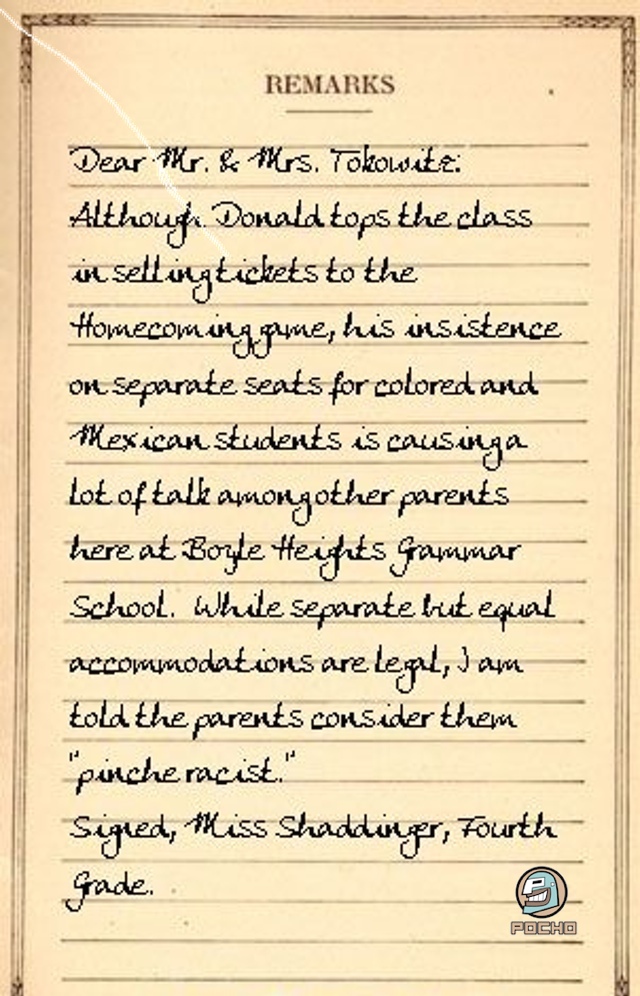 REMARKS
Dear Mr. & Mrs. Tokowitz:
Although Donald tops the class
in selling tickets to the
Homecoming game, his insistence
on separate seats for colored and
Mexican students is causing a
lot of talk among other parents
here at Boyle Heights Grammar
School. While separate but equal
accommodations are legal, I am
told the parents consider them
"pinche racist."
Signed, Miss Shaddinger, Fourth
Grade.
POCHO